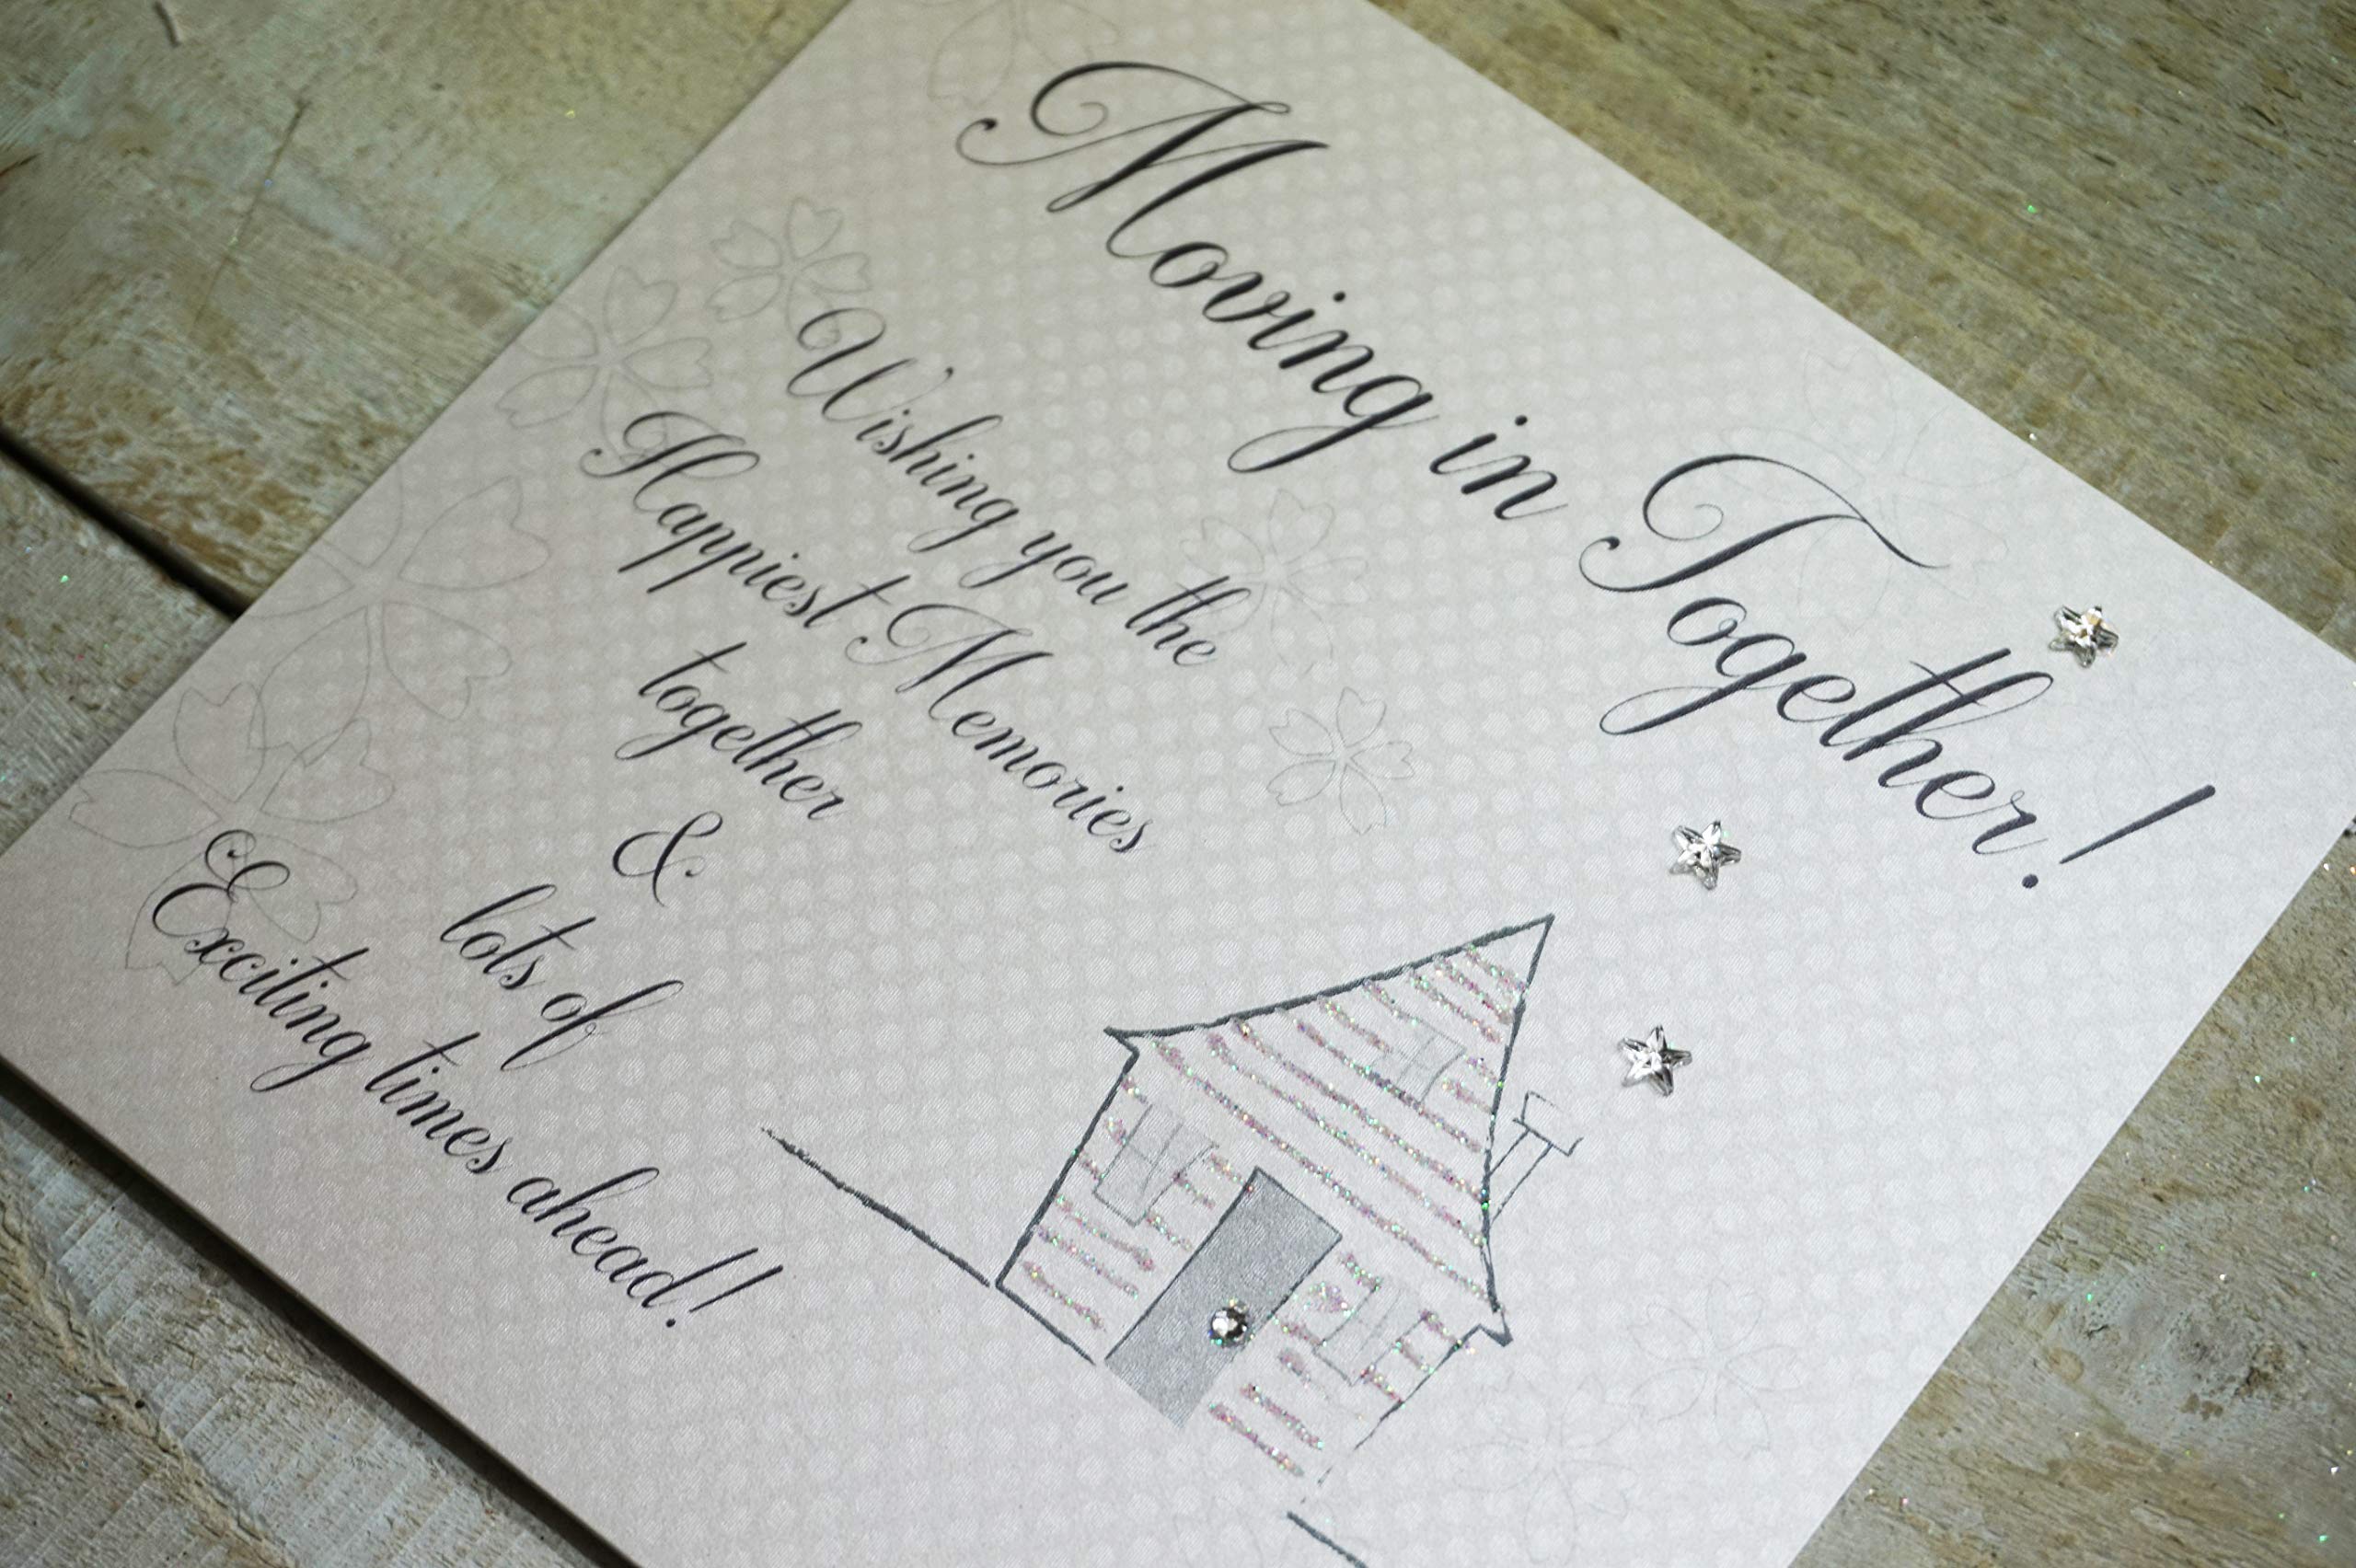 Moving in Together!
Wishing you the
Happiest Memories
together
&
lots of
Exciting times ahead!